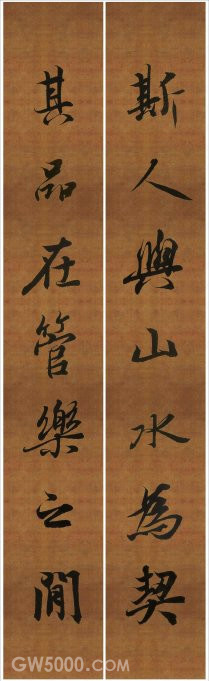 斯人與山水為契
其品在管樂之間
GW5000.com